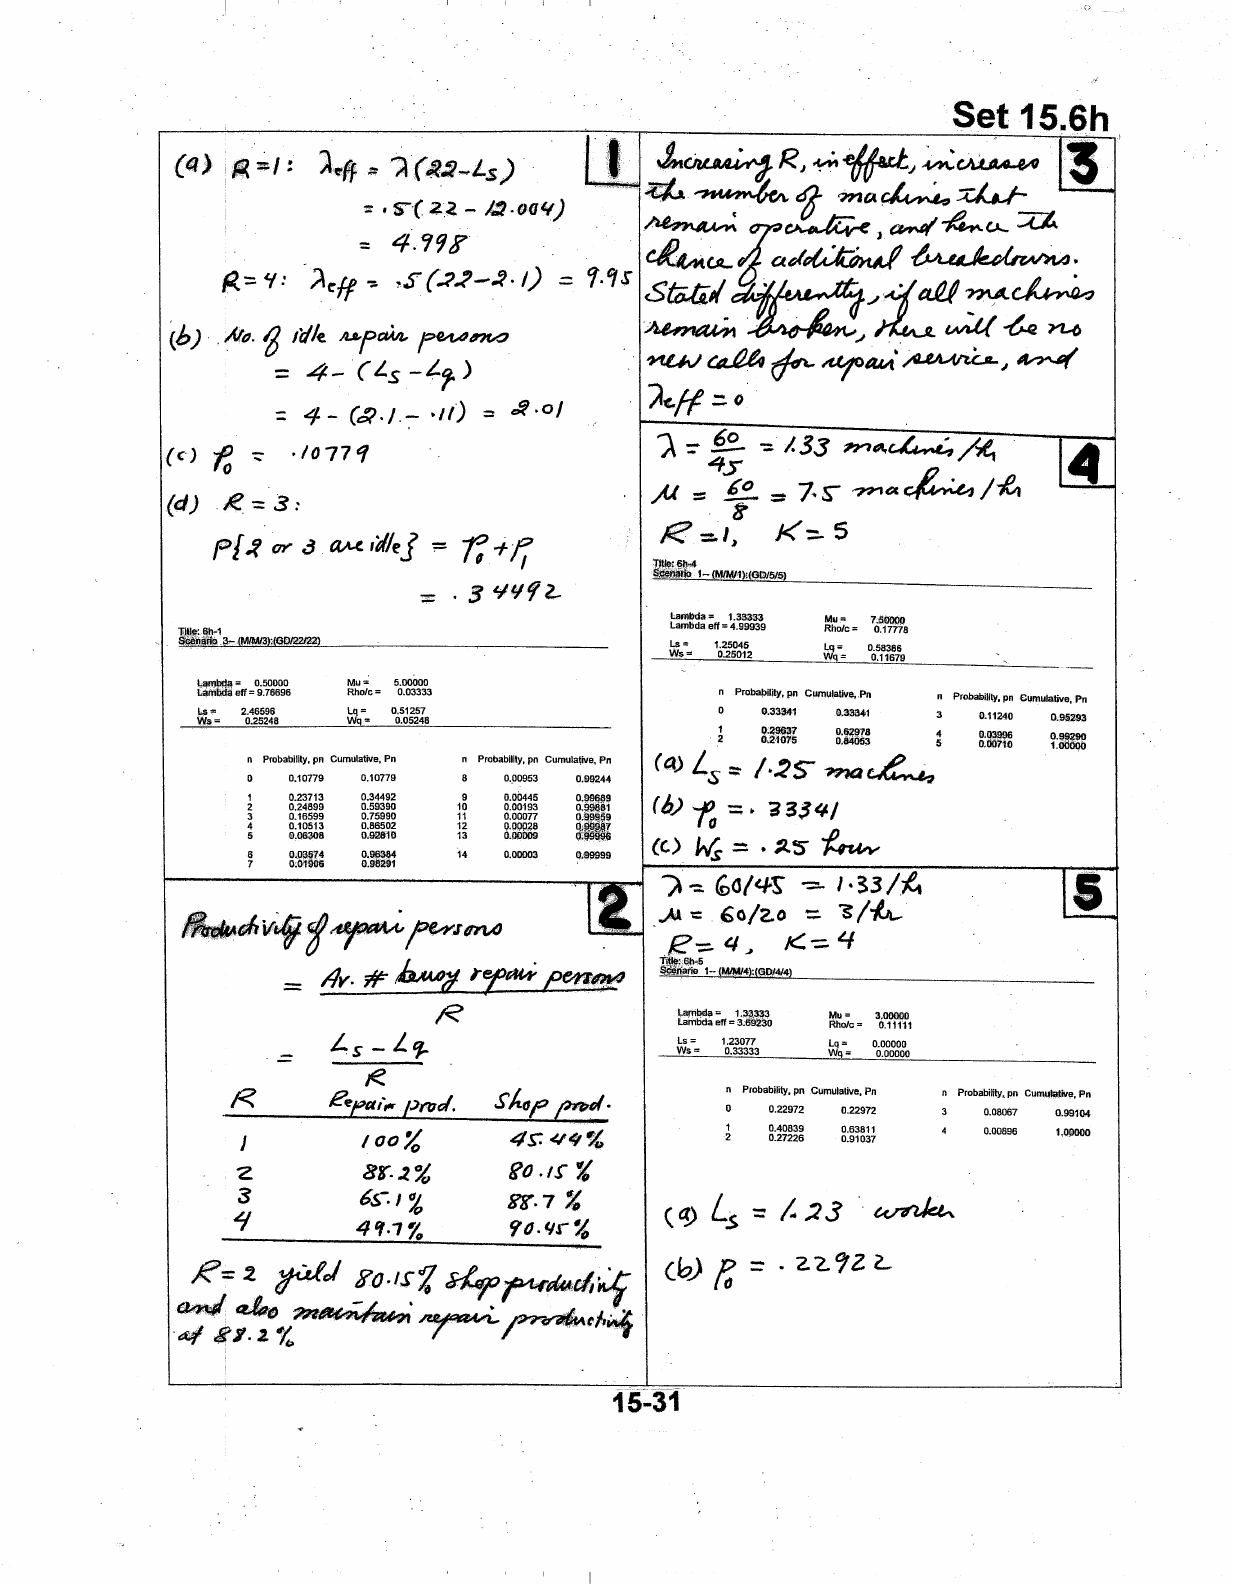 Set 15.6h
1
(a) R=1: λeff = λ(22-Ls)
= .5(22 - 12.004)
= 4.998
R=4: λeff = .5(22-2.1) = 9.95
(b) No. of idle repair persons
= 4-(Ls-Lq)
= 4-(2.1-.11) = 2.01
(c) p0 = .10779
(d) R=3:
P{2 or 3 are idle} = p0+p1
= .34492
Title: 6h-1
Scenario 3-- (M/M/3):(GD/22/22)
Lambda = 0.50000 Mu = 5.00000
Lambda eff = 9.76696 Rho/c = 0.03333
Ls = 2.46596 Lq = 0.51257
Ws = 0.25248 Wq = 0.05248
n Probability, pn Cumulative, Pn n Probability, pn Cumulative, Pn
0 0.10779 0.10779 8 0.00953 0.99244
1 0.23713 0.34492 9 0.00445 0.99689
2 0.24899 0.59390 10 0.00193 0.99881
3 0.16599 0.75990 11 0.00077 0.99959
4 0.10513 0.86502 12 0.00028 0.99987
5 0.06308 0.92810 13 0.00009 0.99996
6 0.03574 0.96384 14 0.00003 0.99999
7 0.01906 0.98291
2
Productivity of repair persons
= Av. # busy repair persons
R
= Ls - Lq
R
R Repair prod. Shop prod.
1 100% 45.44%
2 88.2% 80.15%
3 65.1% 88.7%
4 49.7% 90.45%
R=2 yield 80.15% shop productivity
and also maintain repair productivity
at 88.2%
3
Increasing R, in effect, increases
the number of machines that
remain operative, and hence the
chance of additional breakdowns.
Stated differently, if all machines
remain broken, there will be no
new calls for repair service, and
λeff = 0
4
λ = 60/45 = 1.33 machines/hr
μ = 60/8 = 7.5 machines/hr
R=1, K=5
Title: 6h-4
Scenario 1-- (M/M/1):(GD/5/5)
Lambda = 1.33333 Mu = 7.50000
Lambda eff = 4.99939 Rho/c = 0.17778
Ls = 1.25045 Lq = 0.58386
Ws = 0.25012 Wq = 0.11679
n Probability, pn Cumulative, Pn n Probability, pn Cumulative, Pn
0 0.33341 0.33341 3 0.11240 0.95293
1 0.29637 0.62978 4 0.03996 0.99290
2 0.21075 0.84053 5 0.00710 1.00000
(a) Ls = 1.25 machines
(b) p0 = .33341
(c) Ws = .25 hour
5
λ = 60/45 = 1.33/hr
μ = 60/20 = 3/hr
R=4, K=4
Title: 6h-5
Scenario 1-- (M/M/4):(GD/4/4)
Lambda = 1.33333 Mu = 3.00000
Lambda eff = 3.69230 Rho/c = 0.11111
Ls = 1.23077 Lq = 0.00000
Ws = 0.33333 Wq = 0.00000
n Probability, pn Cumulative, Pn n Probability, pn Cumulative, Pn
0 0.22972 0.22972 3 0.08067 0.99104
1 0.40839 0.63811 4 0.00896 1.00000
2 0.27226 0.91037
(a) Ls = 1.23 worker
(b) p0 = .22922
15-31